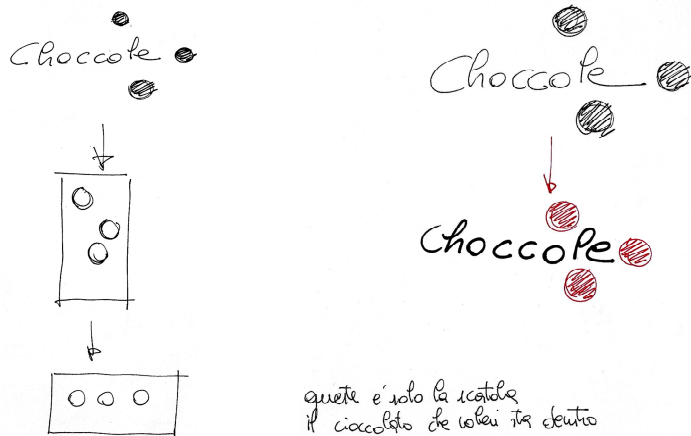 Choccole
Choccole
Choccole
queste e' solo la scatola
il cioccolato che volevi sta dentro